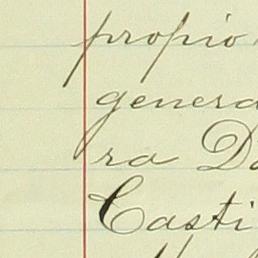 propio
genera
ra Da
Casti